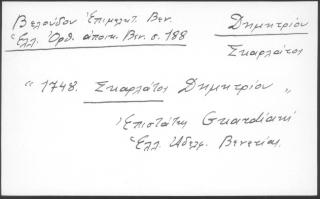 Βελούδου Ἐπιμελητ. Βεν.
Ἑλλ. Ὀρθ. ἀποικ. Βιν. σ. 188
Δημητρίου
Σκαρλάτος
"1748. Σκαρλάτος Δημητρίου"
Ἐπιστάτης Guardiani
Ἑλλ. Ἀδελφ. Βενετίας.